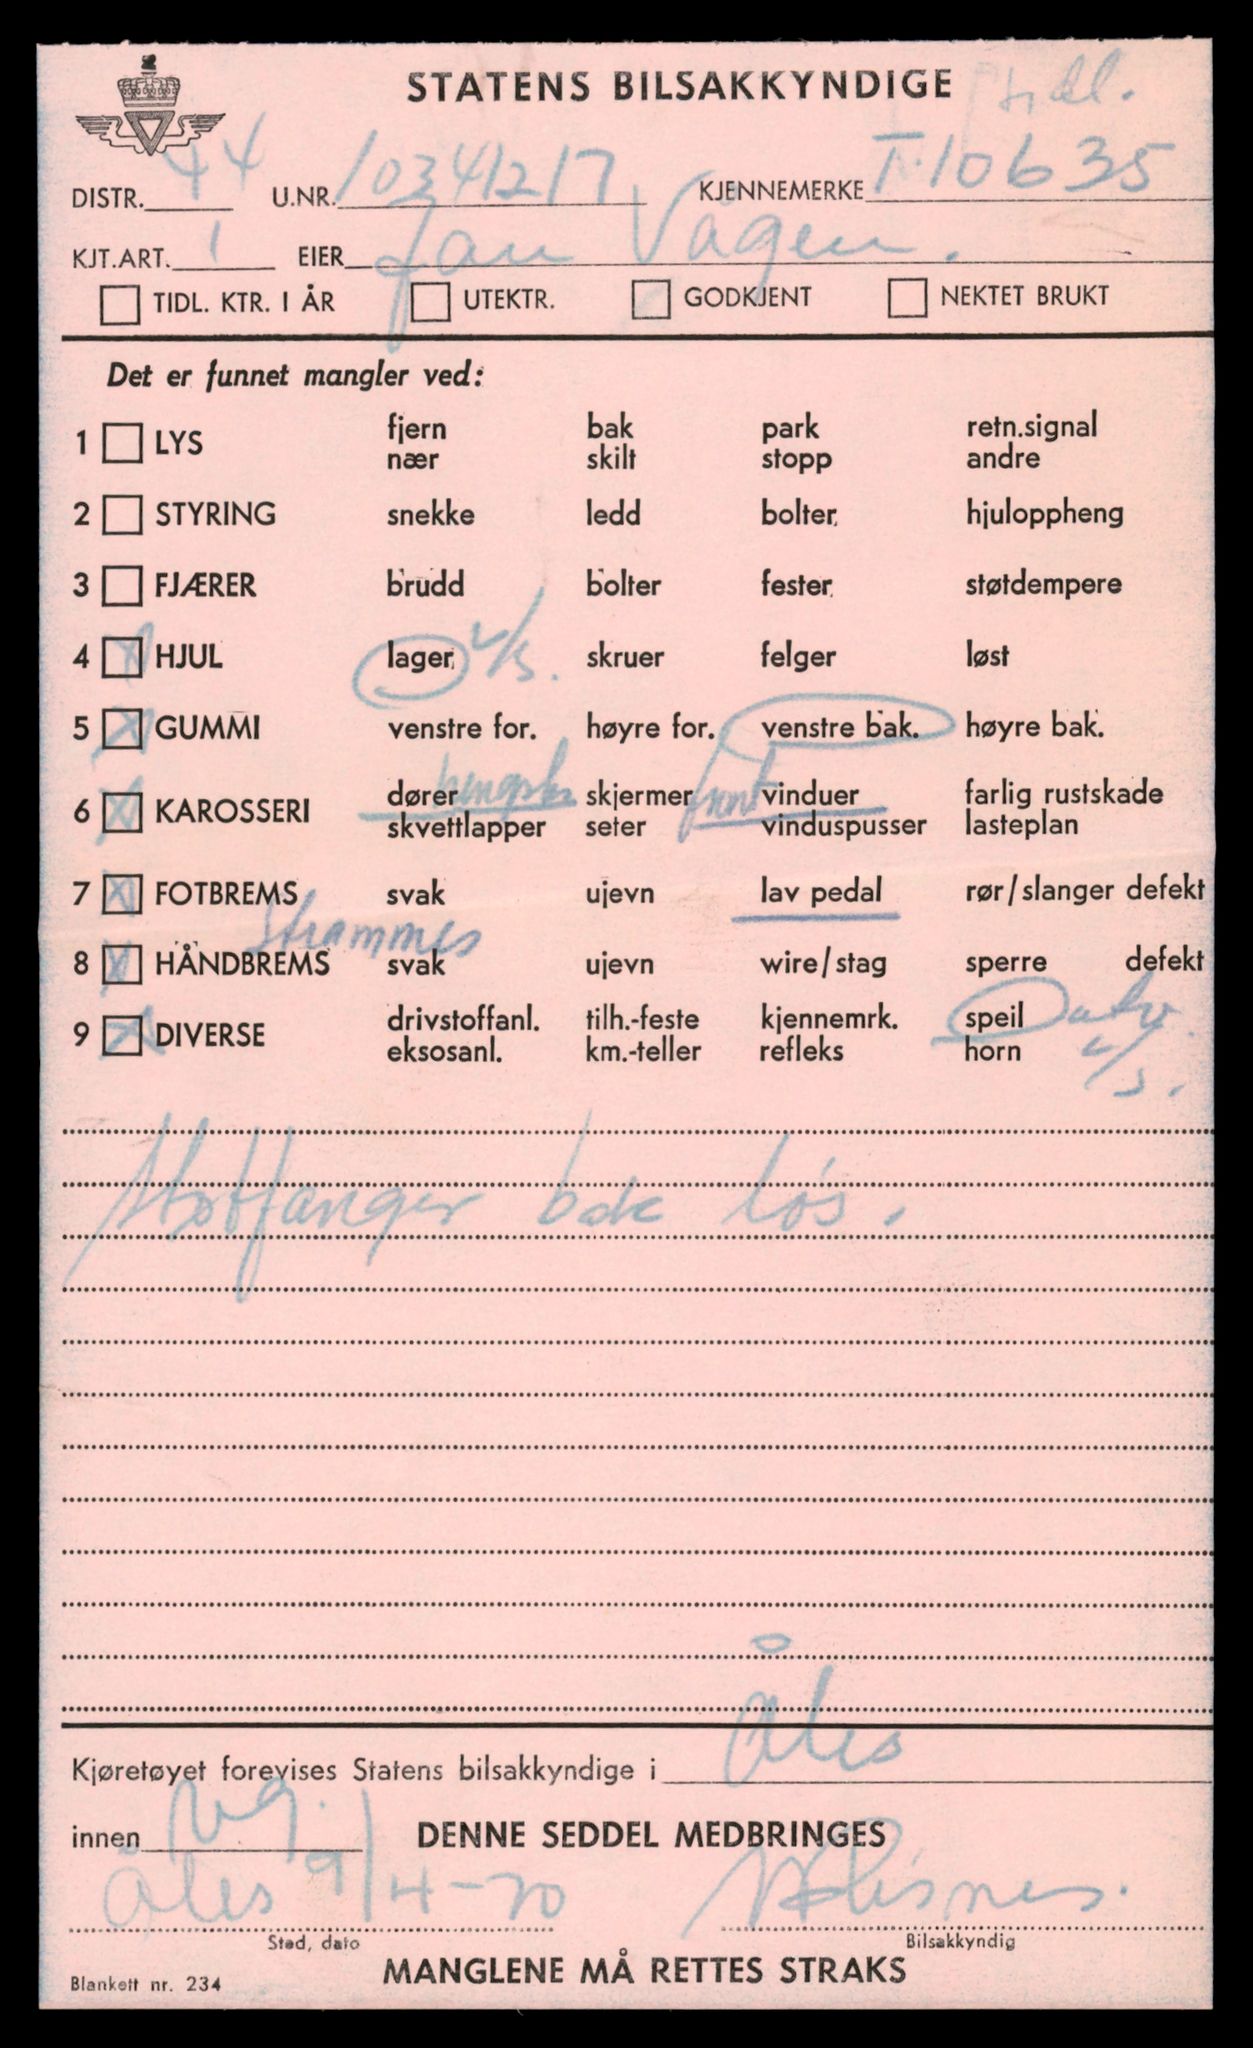 STATENS BILSAKKYNDIGE tidl.
DISTR. 44 U.NR. 10341217 KJENNEMERKE T-10635
KJT.ART. 1 EIER Jan Vågen.
TIDL. KTR. I ÅR UTEKTR. GODKJENT NEKTET BRUKT
Det er funnet mangler ved:
1 LYS fjern bak park retn.signal
nær skilt stopp andre
2 STYRING snekke ledd bolter hjuloppheng
3 FJÆRER brudd bolter fester støtdempere
4 X HJUL lager v/s. skruer felger løst
5 X GUMMI venstre for. høyre for. venstre bak. høyre bak.
6 X KAROSSERI dører hengsler skjermer front vinduer farlig rustskade
skvettlapper seter vinduspusser lasteplan
7 X FOTBREMS svak ujevn lav pedal rør/slanger defekt
strammes
8 X HÅNDBREMS svak ujevn wire/stag sperre defekt
9 X DIVERSE drivstoffanl. tilh.-feste kjennemrk. speil utv.
eksosanl. km.-teller refleks horn v/s.
Støtfanger bak løs.
Kjøretøyet forevises Statens bilsakkyndige i Åles
innen DENNE SEDDEL MEDBRINGES
Åles 9/4-70
Stad, dato Bilsakkyndig
Blankett nr. 234 MANGLENE MÅ RETTES STRAKS